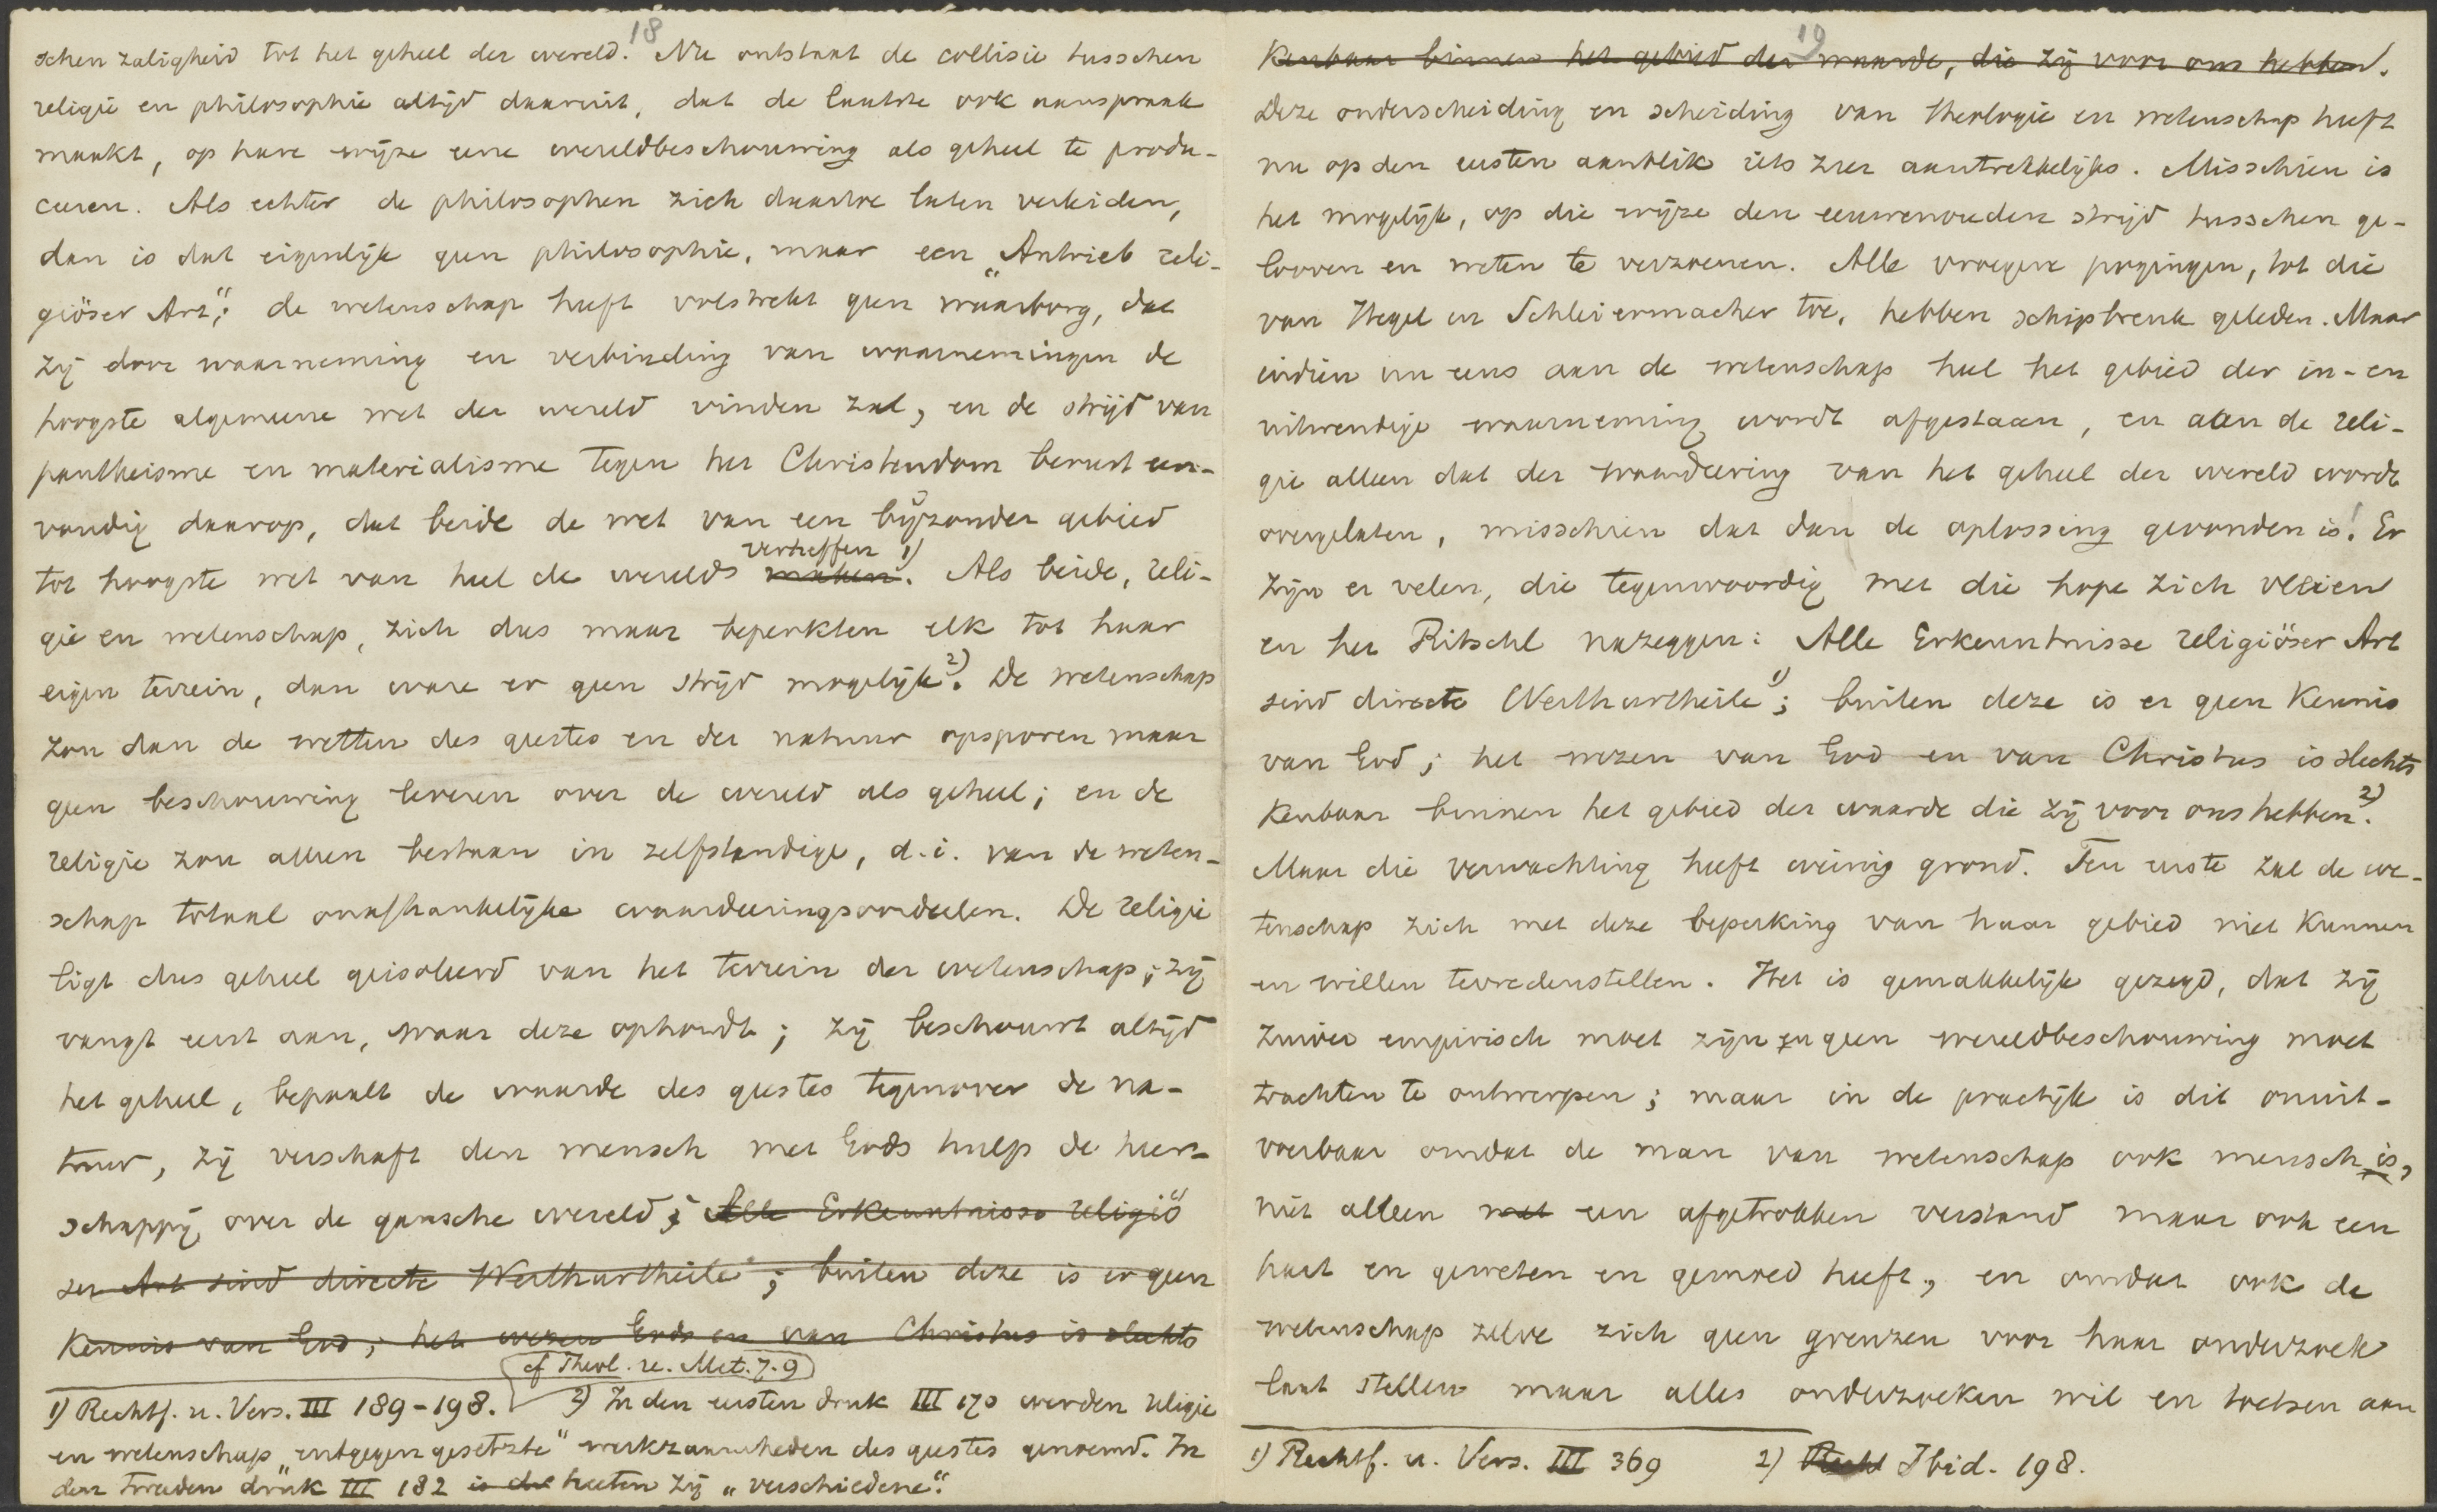 18
schen zaligheid tot het geheel der wereld. Nu ontstaat de collisie tusschen
religie en philosophie altijd daaruit, dat de laatste ook aanspraak
maakt, op hare wijze eene wereldbeschouwing als geheel te produ-
ceeren. Als echter de philosophen zich daartoe laten verleiden,
dan is dat eigenlijk geen philosophie, maar een „Antrieb reli-
giöser Art"; de wetenschap heeft volstrekt geen waarborg, dat
zij door waarneming en verbinding van waarnemingen de
hoogste algemeene wet der wereld vinden zal, en de strijd van
pantheisme en materialisme tegen het Christendom berust een-
voudig daarop, dat beide de wet van een bijzonder gebied
verheffen 1)
tot hoogste wet van heel de wereld maken. Als beide, reli-
gie en wetenschap, zich dus maar beperkten elk tot haar
eigen terrein, dan ware er geen strijd mogelijk 2). De wetenschap
zou dan de wetten des geestes en der natuur opsporen maar
geen beschouwing leveren over de wereld als geheel; en de
religie zou alleen bestaan in zelfstandige, d.i. van de weten-
schap totaal onafhankelijke waardeeringsoordeelen. De religie
ligt dus geheel geisoleerd van het terrein der wetenschap; zij
vangt eerst aan, waar deze ophoudt; zij beschouwt altijd
het geheel, bepaalt de waarde des geestes tegenover de na-
tuur, zij verschaft den mensch met Gods hulp de heer-
schappij over de gansche wereld; Alle Erkenntnisse religiö
ser Art sind directe Werthurtheile; buiten deze is er geen
Kennis van God; het wezen Gods en van Christus is slechts
cf Theol. u. Met. 7.9
1) Rechtf. u. Vers. III 189-198. 2) In den eersten druk III 170 werden religie
en wetenschap „entgegengesetzte" werkzaamheden des geestes genoemd. In
den tweeden druk III 182 is de heeten zij „verschiedene".
19
Kenbaar binnen het gebied der waarde, die zij voor ons hebben.
Deze onderscheiding en scheiding van theologie en wetenschap heeft
nu op den eersten aanblik iets zeer aantrekkelijks. Misschien is
het mogelijk, op die wijze den eeuwenouden strijd tusschen ge-
looven en weten te verzoenen. Alle vroegere pogingen, tot die
van Hegel en Schleiermacher toe, hebben schipbreuk geleden. Maar
indien nu eens aan de wetenschap heel het gebied der in- en
uitwendige waarneming wordt afgestaan, en aan de reli-
gie alleen dat der waardeering van het geheel der wereld wordt
overgelaten, misschien dat dan de oplossing gevonden is! Er
zijn er velen, die tegenwoordig met die hope zich vleien
en het Ritschl nazeggen: Alle Erkenntnisse religiöser Art
sind directe Werthurtheile 1); buiten deze is er geen Kennis
van God; het wezen van God en van Christus is slechts
Kenbaar binnen het gebied der waarde die zij voor ons hebben 2).
Maar die verwachting heeft weinig grond. Ten eerste zal de we-
tenschap zich met deze beperking van haar gebied niet kunnen
en willen tevredenstellen. Het is gemakkelijk gezegd, dat zij
zuiver empirisch moet zijn en geen wereldbeschouwing moet
trachten te ontwerpen; maar in de practijk is dit onuit-
voerbaar omdat de man van wetenschap ook mensch is,
niet alleen met een afgetrokken verstand maar ook een
hart en geweten en gemoed heeft, en omdat ook de
wetenschap zelve zich geen grenzen voor haar onderzoek
laat stellen maar alles onderzoeken wil en toetsen aan
1) Rechtf. u. Vers. III 369 2) Recht Ibid. 198.